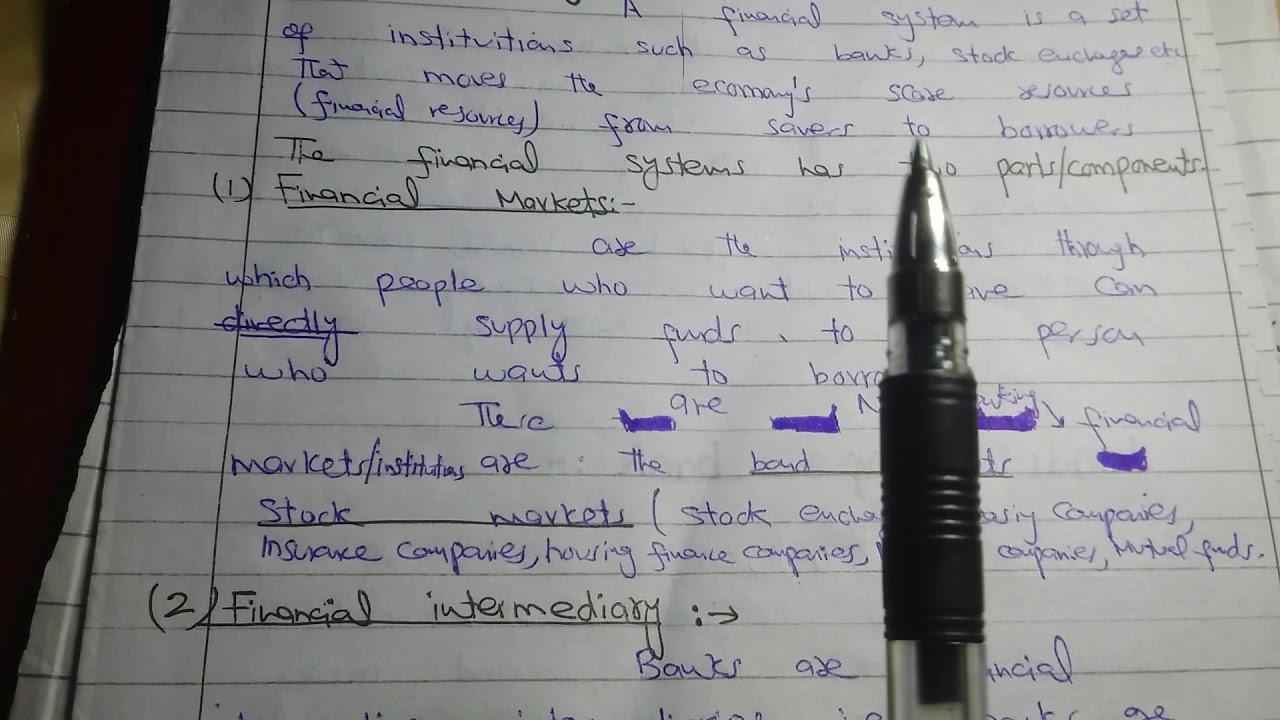 A financial system is a set
of instituitions such as banks, stock enchages etc
That moves the ecomany's scare resources
(financial resources) from savers to borrowers
The financial systems has two parts/components.
(1) Financial Markets:-
are the through
which people who want to can
directly supply funds, to person
who wants to
There are financial
markets/institutions are : the bond
Stock markets (stock companies,
Insurance companies, housing finance companies, companies, Mutual funds.
(2) Financial intermediary :→
Banks are
are